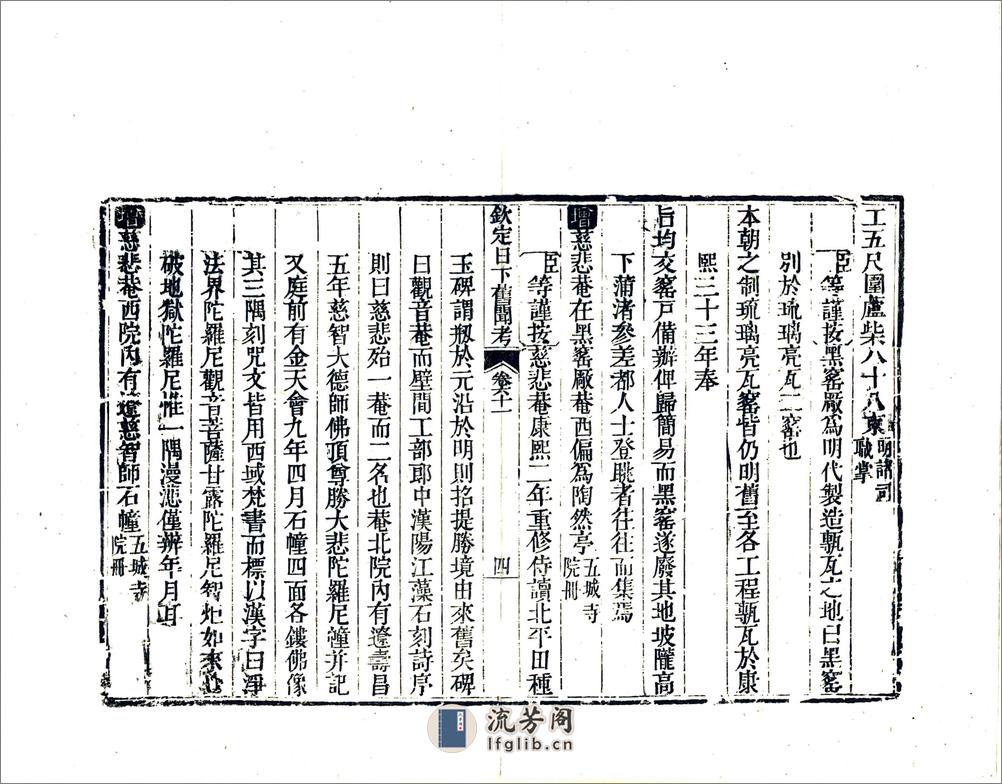 工五尺圍蘆柴八十八束明諸司職掌
臣等謹按黑窰廠爲明代製造甎瓦之地曰黑窰
別於琉璃亮瓦二窰也
本朝之制琉璃亮瓦窰皆仍明舊至各工程甎瓦於康
熙三十三年奉
旨均交窰戶備辦俾歸簡易而黑窰遂廢其地坡隴高
下蒲渚參差都人士登眺者往往而集焉
增慈悲菴在黑窰厰菴西偏爲陶然亭五城寺院冊
臣等謹按慈悲菴康熙二年重修侍讀北平田種
欽定日下舊聞考 卷六十一 四
玉碑謂剏於元沿於明則招提勝境由來舊矣碑
曰觀音菴而壁間工部郎中漢陽江藻石刻詩序
則曰慈悲殆一菴而二名也菴北院內有遼壽昌
五年慈智大德師佛頂尊勝大悲陀羅尼幢并記
又庭前有金天會九年四月石幢四面各鏤佛像
其三隅刻咒文皆用西域梵書而標以漢字曰淨
法界陀羅尼觀音菩薩甘露陀羅尼智炬如來心
破地獄陀羅尼惟一隅漫漶僅辨年月耳
增慈悲菴西院內有遼慈智師石幢五城寺院冊
流芳阁
lfglib.cn